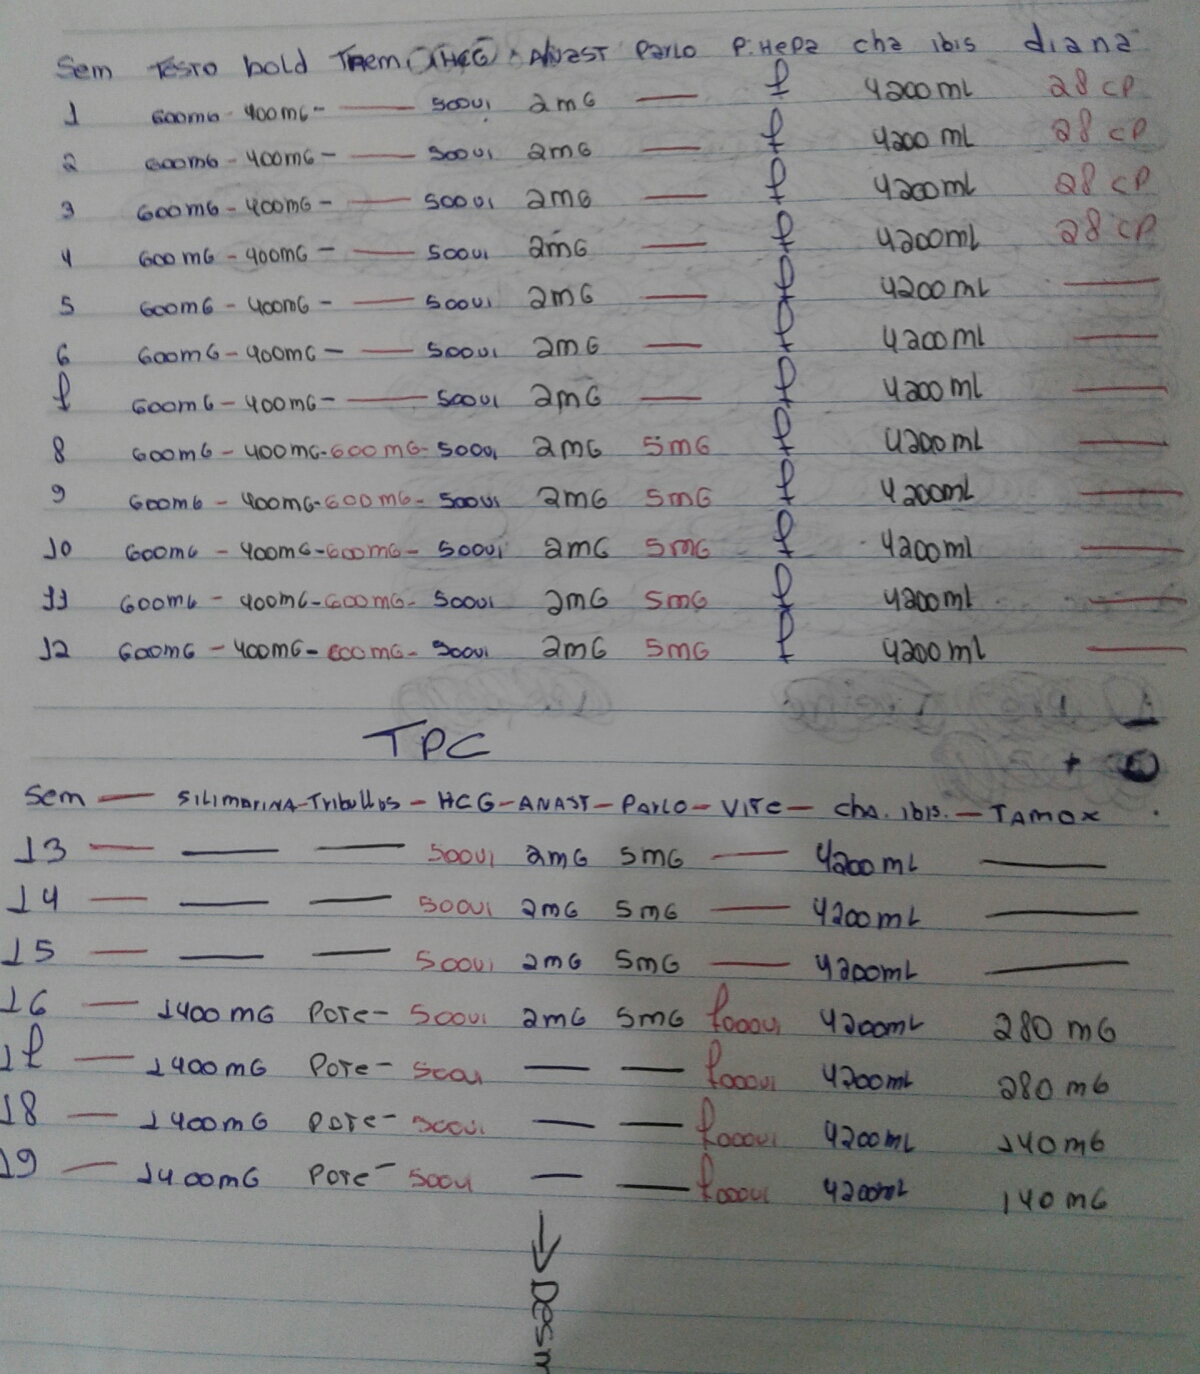 Sem Testo bold Trem (HCG) ANAST Parlo P.HePa cha ibis diana
1 600mG - 400mG - — 500ui 2mG — 7 4200mL 28 CP
2 600mG - 400mG - — 500ui 2mG — 7 4200mL 28 CP
3 600mG - 400mG - — 500ui 2mG — 7 4200mL 28 CP
4 600mG - 400mG - — 500ui 2mG — 7 4200mL 28 CP
5 600mG - 400mG - — 500ui 2mG — 7 4200mL —
6 600mG - 400mG - — 500ui 2mG — 7 4200mL —
7 600mG - 400mG - — 500ui 2mG — 7 4200mL —
8 600mG - 400mG - 600mG - 500ui 2mG 5mG 7 4200mL —
9 600mG - 400mG - 600mG - 500ui 2mG 5mG 7 4200mL —
10 600mG - 400mG - 600mG - 500ui 2mG 5mG 7 4200mL —
11 600mG - 400mG - 600mG - 500ui 2mG 5mG 7 4200mL —
12 600mG - 400mG - 600mG - 500ui 2mG 5mG 7 4200mL —
TPC
Sem — SILIMARINA - Tribullos - HCG - ANAST - Parlo - VITE - cha. ibis. - TAMOX
13 — — — 500ui 2mG 5mG — 4200mL —
14 — — — 500ui 2mG 5mG — 4200mL —
15 — — — 500ui 2mG 5mG — 4200mL —
16 — 1400mG POTE - 500ui 2mG 5mG 7000ui 4200mL 280mG
17 — 1400mG POTE - 500ui — — 7000ui 4200mL 280mG
18 — 1400mG POTE - 500ui — — 7000ui 4200mL 140mG
19 — 1400mG POTE - 500ui — — 7000ui 4200mL 140mG
→ Desm